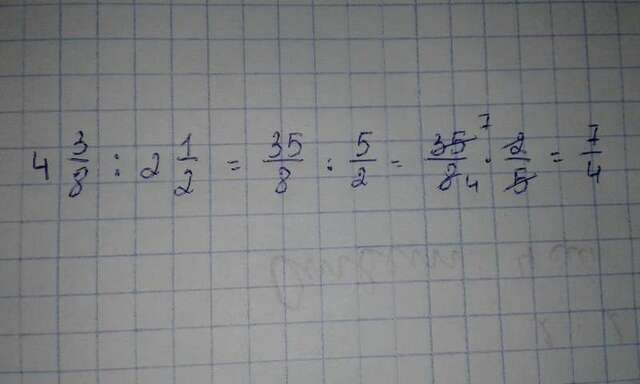 4 3/8 : 2 1/2 = 35/8 : 5/2 = 35/8 · 2/5 = 7/4